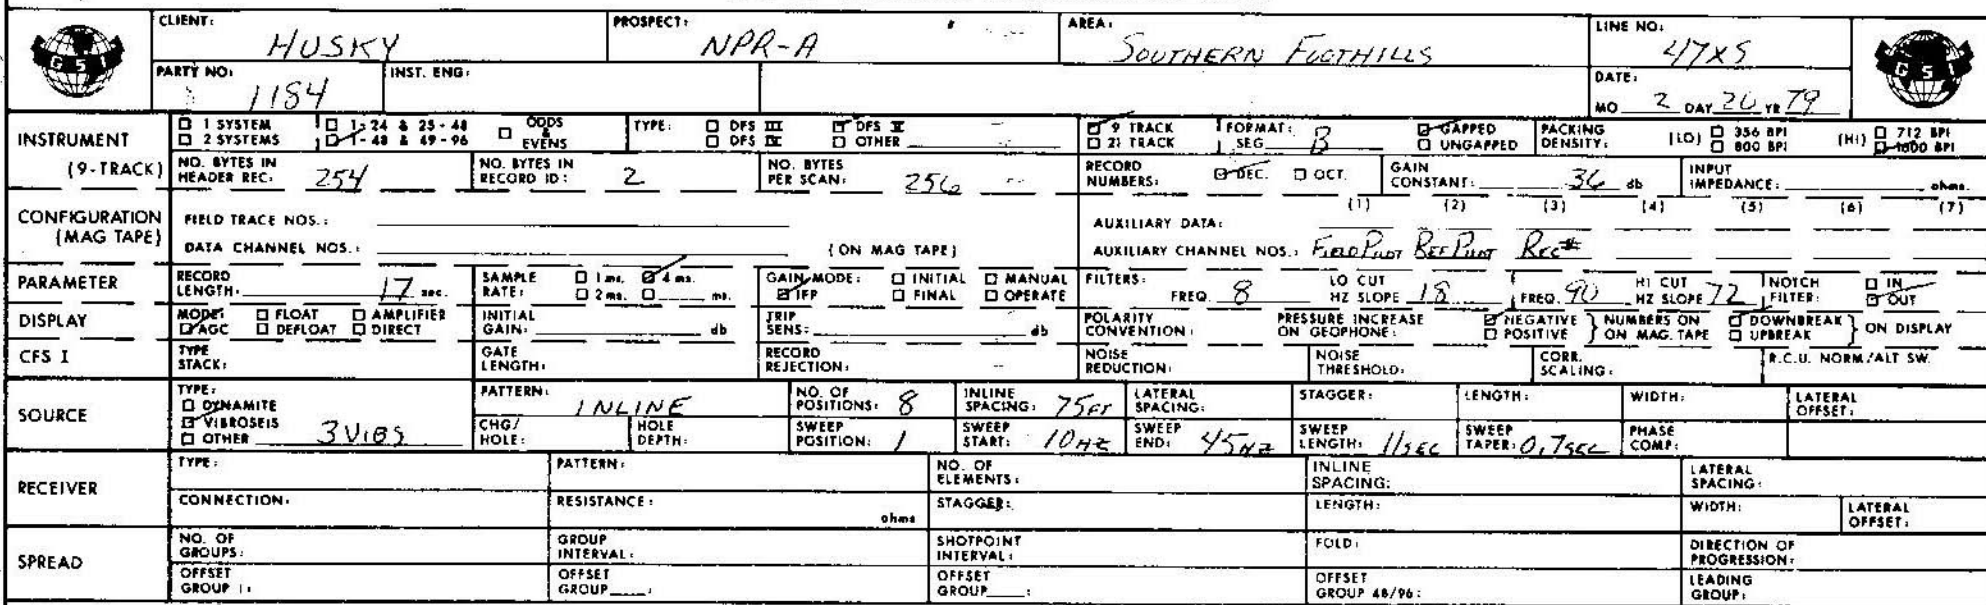 CLIENT: HUSKY PROSPECT: NPR-A AREA: SOUTHERN FOOTHILLS LINE NO: 47X5
GSI GSI
PARTY NO: 1184 INST. ENG: DATE: MO 2 DAY 20 YR 79
INSTRUMENT (9-TRACK) 1 SYSTEM 1-24 & 25-48 ODDS & EVENS TYPE: DFS III DFS V 9 TRACK FORMAT: SEG B GAPPED PACKING DENSITY: (LO) 356 BPI (HI) 712 BPI
2 SYSTEMS 1-48 & 49-96 DFS IV OTHER 21 TRACK UNGAPPED 800 BPI 1600 BPI
NO. BYTES IN HEADER REC: 254 NO. BYTES IN RECORD ID: 2 NO. BYTES PER SCAN: 256 RECORD NUMBERS: DEC. OCT. GAIN CONSTANT: 36 db INPUT IMPEDANCE: ohms.
CONFIGURATION (MAG TAPE) FIELD TRACE NOS.: AUXILIARY DATA: (1) (2) (3) (4) (5) (6) (7)
DATA CHANNEL NOS.: (ON MAG TAPE) AUXILIARY CHANNEL NOS.: FIELD PILOT REF PILOT REC#
PARAMETER RECORD LENGTH: 17 sec. SAMPLE RATE: 1 ms. 4 ms. 2 ms. ms. GAIN MODE: INITIAL MANUAL IFP FINAL OPERATE FILTERS: FREQ. 8 LO CUT HZ SLOPE 18 FREQ. 90 HI CUT HZ SLOPE 72 NOTCH FILTER: IN OUT
DISPLAY MODE: FLOAT AMPLIFIER AGC DEFLOAT DIRECT INITIAL GAIN: db TRIP SENS: db POLARITY CONVENTION: PRESSURE INCREASE ON GEOPHONE: NEGATIVE POSITIVE } NUMBERS ON ON MAG. TAPE DOWNBREAK UPBREAK } ON DISPLAY
CFS I TYPE STACK: GATE LENGTH: RECORD REJECTION: NOISE REDUCTION: NOISE THRESHOLD: CORR. SCALING: R.C.U. NORM/ALT SW.
SOURCE TYPE: DYNAMITE VIBROSEIS OTHER 3 VIBS PATTERN: INLINE NO. OF POSITIONS: 8 INLINE SPACING: 75FT LATERAL SPACING: STAGGER: LENGTH: WIDTH: LATERAL OFFSET:
CHG/HOLE: HOLE DEPTH: SWEEP POSITION: 1 SWEEP START: 10HZ SWEEP END: 45HZ SWEEP LENGTH: 11SEC SWEEP TAPER: 0.7SEC PHASE COMP:
RECEIVER TYPE: PATTERN: NO. OF ELEMENTS: INLINE SPACING: LATERAL SPACING:
CONNECTION: RESISTANCE: ohms STAGGER: LENGTH: WIDTH: LATERAL OFFSET:
SPREAD NO. OF GROUPS: GROUP INTERVAL: SHOTPOINT INTERVAL: FOLD: DIRECTION OF PROGRESSION:
OFFSET GROUP 1: OFFSET GROUP : OFFSET GROUP : OFFSET GROUP 48/96: LEADING GROUP: